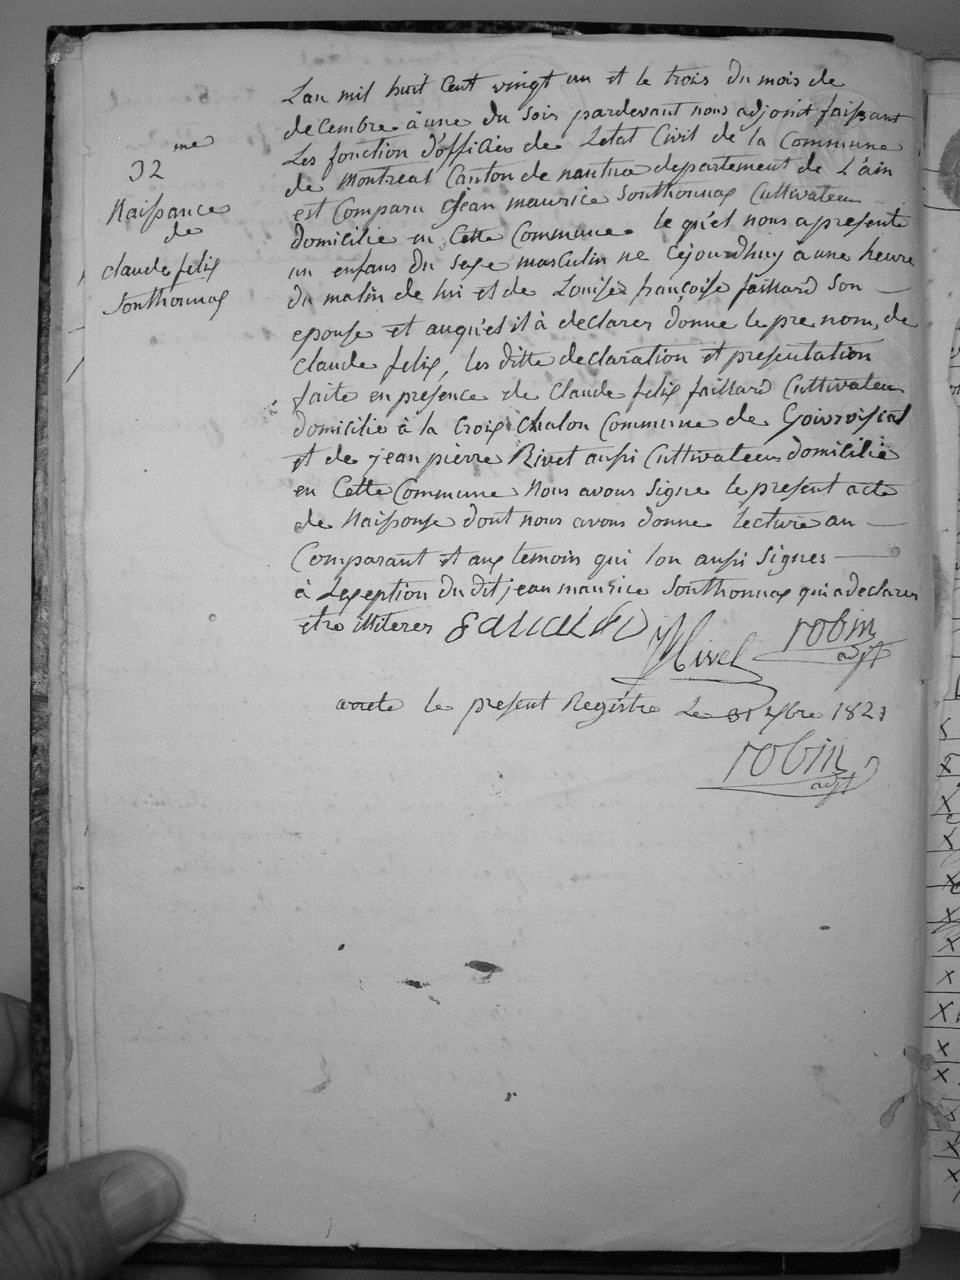 32me
Naissance
de
claude felix
Sonthonnax
Lan mil huit Cent vingt un et le trois du mois de
decembre à une du soir pardevant nous adjoint faissant
Les fonction d'officier de Letat Civil de la Commune
de Montreal Canton de nantua departement de L'ain
est Comparu Jean maurice Sonthonnax Cultivateur
domicilié en Cette Commune le qu'el nous a presente
un enfans du sexe masculin ne cejourdhuy à une heure
du matin de lui et de Louise françoise faillard Son
epouse et auqu'el il à declarer donne le prenom de
claude felix, les ditte declaration et presentation
faite en presence de Claude felix faillard Cultivateur
domicilié à la Croix Chalon Commune de
et de jean pierre Rivet aussi Cultivateur domicilié
en Cette Commune Nous avons Signe le present acte
de Naissance dont nous avons donne lecture au
Comparant et aux temoin qui lon aussi Signes
à Lexeption du dit jean maurice Sonthonnax qui a declarer
etre illiterer
Rivet robin
adjt
arrete le present Registre Le 31 xbre 1821
robin
adjt